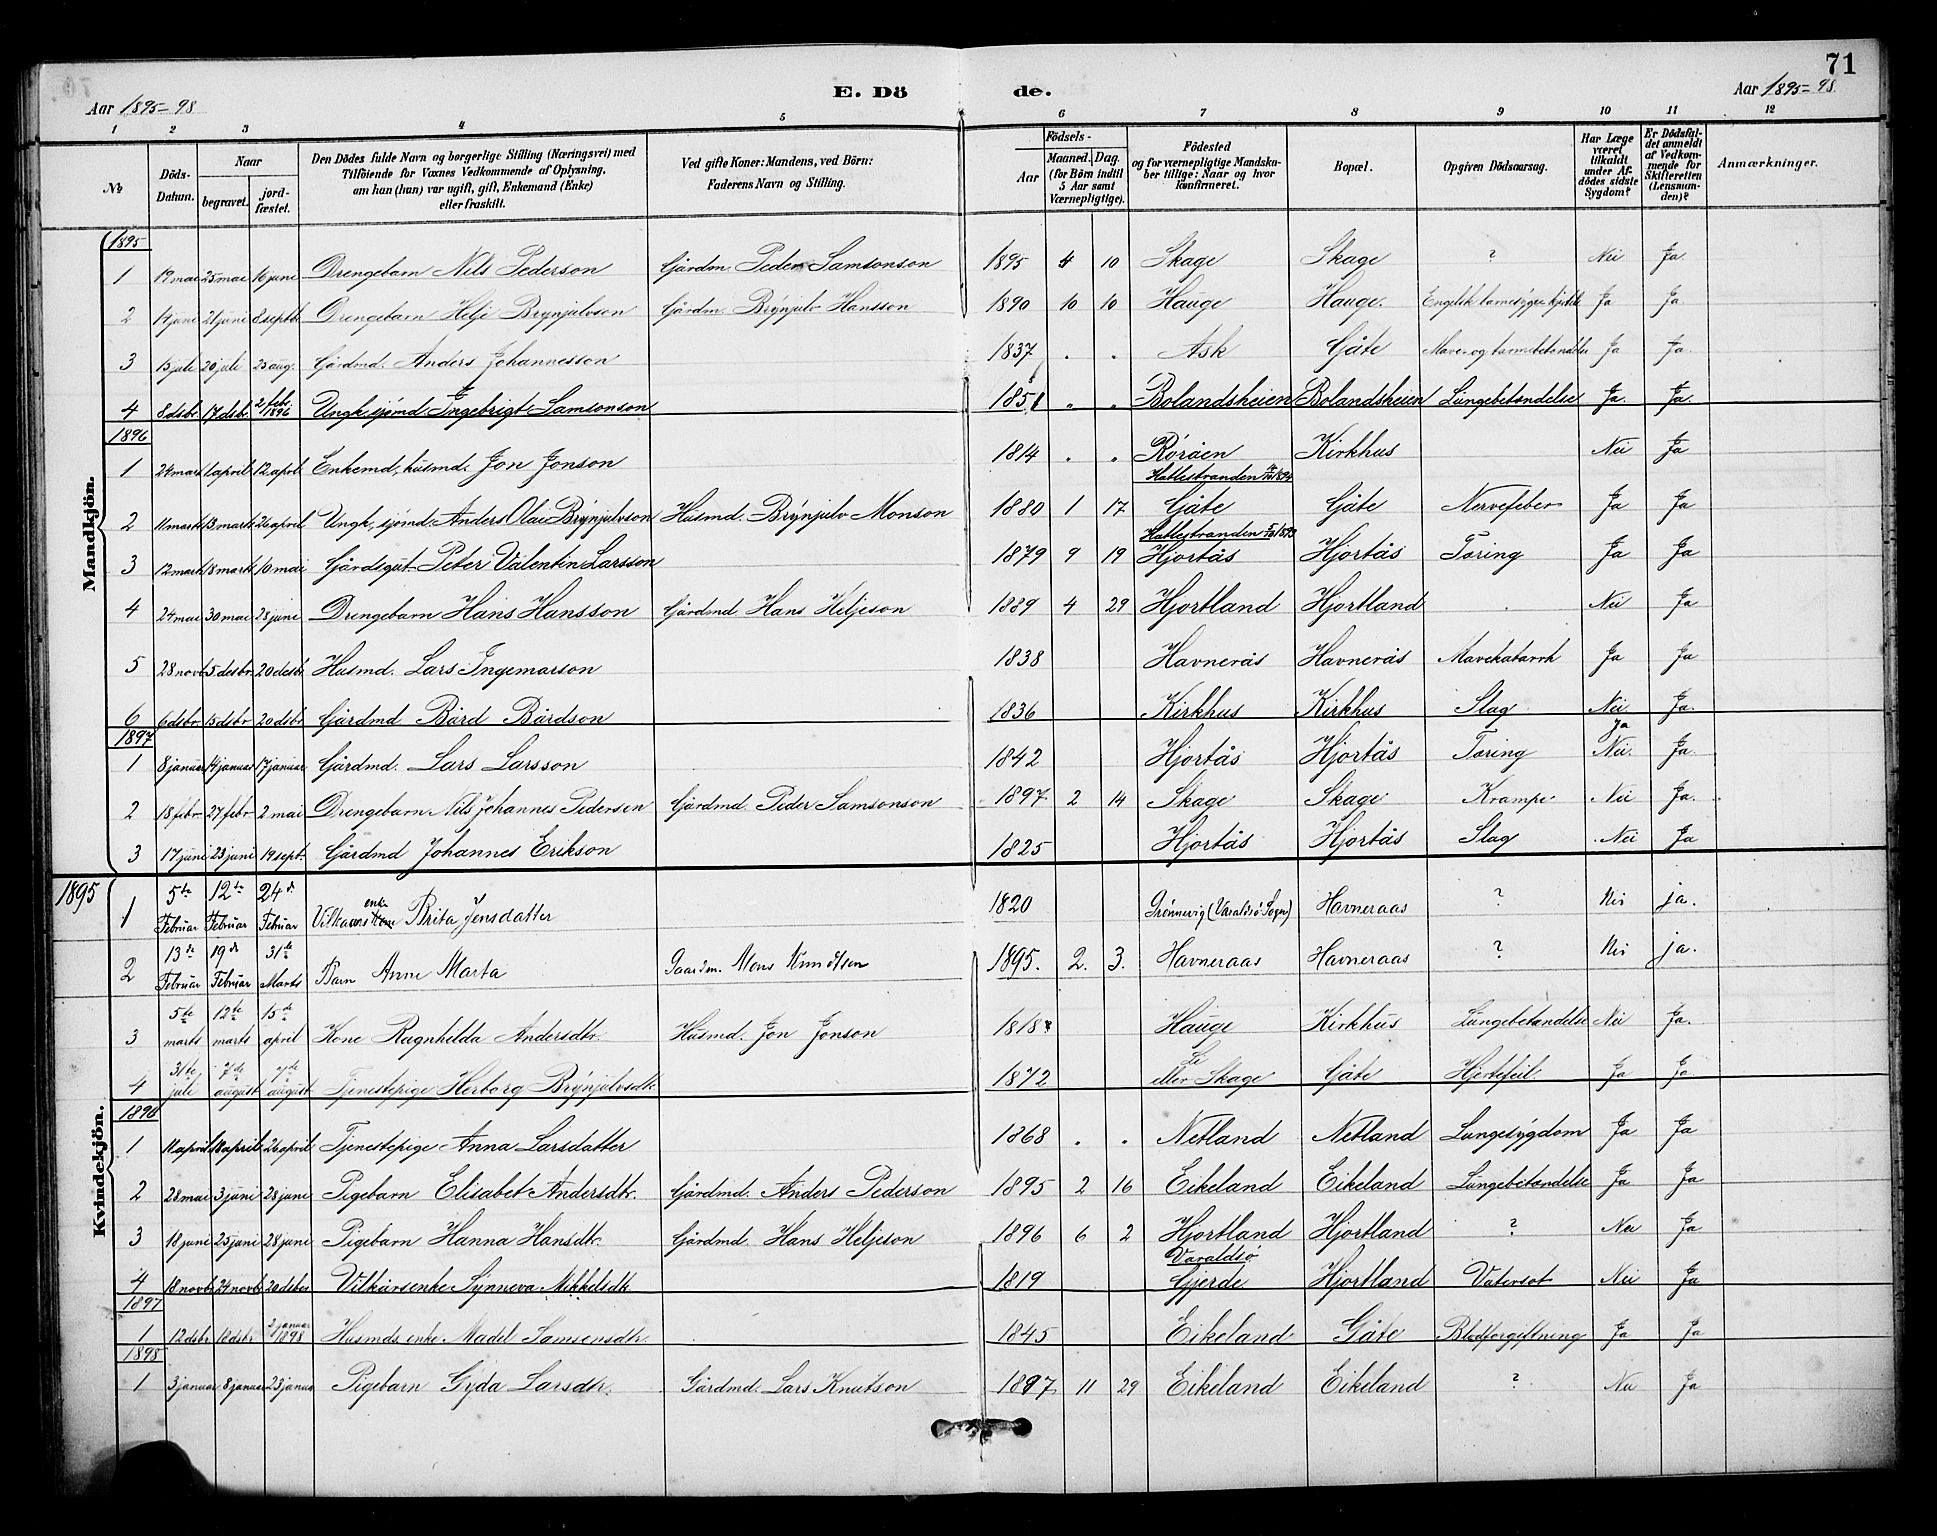 71
Aar 1895-98 E. Döde. Aar 1895-98
1 2 3 4 5 6 7 8 9 10 11 12
No | Döds-Datum. | Naar begravet. | Naar jord-fæstet. | Den Dödes fulde Navn og borgerlige Stilling (Næringsvei) med Tilföiende for Voxnes Vedkommende af Oplysning, om han (hun) var ugift, gift, Enkemand (Enke) eller fraskilt. | Ved gifte Koner: Mandens, ved Börn: Faderens Navn og Stilling. | Födsels- Aar | Maaned. Dag. (for Börn indtil 5 Aar samt Værnepligtige). | Födested og for værnepligtige Mandskaber tillige: Naar og hvor konfirmeret. | Bopæl. | Opgiven Dödsaarsag. | Har Læge været tilkaldt under Afdödes sidste Sygdom? | Er Dödsfaldet anmeldt af Vedkommende for Skifteretten (Lensmanden)? | Anmærkninger.
Mandkjön.
1895
1 | 19 mai | 25 mai | 16 juni | Drengebarn Nils Pederson | Gårdm. Peder Samsonson | 1895 | 4 | 10 | Skage | Skage | ? | Nei | Ja
2 | 14 juni | 21 juni | 8 septbr | Drengebarn Helje Brynjulvsen | Gårdm. Brynjulv Hansson | 1890 | 10 | 10 | Hauge | Hauge. | Engelsk | Ja | Ja
3 | 15 juli | 20 juli | 25 aug. | Gårdmd. Anders Johannesson | 1837 | . | . | Ask | Gåte | Mave og tarmbetændelse | Ja | Ja.
4 | 8 dsbr | 17 dsbr. | 2 feb. 1896 | Ungk. sjömd. Ingebrigt Samsonson | 1851 | " | " | Bolandsheien | Bolandsheien | Lungebetændelse | Ja. | Ja.
1896
1 | 24 mars | 1 april | 12 april | Enkemd, husmd. Jon Jonson | 1814 | . | . | Röröen | Kirkhus | Nei | Ja
2 | 11 marts | 13 marts | 26 april | Ungk, sjömd. Anders Olai Brynjulvson | Husmd. Brynjulv Monson | 1880 | 1 | 17 | Hatlestranden 1894 Gåte | Gåte | Nervefeber | Ja | Ja
3 | 12 marts | 18 marts | 10 mai | Gårdsgut. Peter Valentin Larsson | 1879 | 9 | 19 | Hatlestranden Hjortås | Hjortås | Tæring | Ja | Ja
4 | 24 mai | 30 mai | 28 juni | Drengebarn Hans Hansson | Gårdmd. Hans Heljeson | 1889 | 4 | 29 | Hjortland | Hjortland | . | Nei | Ja
5 | 28 novb. | 5 desbr. | 20 desb. | Husmd. Lars Ingemarson | 1838 | Havnerås | Havnerås | Mavekatarrh | Ja | Ja
6 | 6 dsbr. | 15 dsbr | 20 dsbr | Gårdmd Bård Bårdson | 1836 | Kirkhus | Kirkhus | Slag | Nei | Ja.
1897
1 | 8 januar | 14 januar | 17 januar | Gårdmd. Lars Larsson | 1842 | Hjortås | Hjortås | Tæring | Ja Nei. | Ja.
2 | 18 febr. | 27 febr | 2 mai | Drengebarn Nils Johannes Pedersen | Gårdmd. Peder Samsonson | 1897 | 2 | 14 | Skage | Skage | Krampe | Nei | Ja.
3 | 17 juni | 23 juni | 19 sept. | Gårdmd Johannes Erikson | 1825 | Hjortås | Hjortås | Slag | Nei | Ja
Kvindekjön.
1895
1 | 5te Februar | 12te Februar | 24de Februar | Vilkaars enke Brita Jensdatter | 1820 | Grönnevig (Varaldsö Sogn) | Havneraas | ? | Nei | ja.
2 | 13de Februar | 19de Februar | 31te Marts | Barn Anne Marta | Gaardm. Mons Knudtsen | 1895. | 2. | 3. | Havneraas | Havneraas | ? | Nei | ja.
3 | 5te marts | 12te marts | 15de april | Kone Ragnhilda Andersdtr. | Husmd. Jon Jonson | 1818 | Hauge | Kirkhus | Lungebetændelse | Nei | Ja.
4 | 31te juli | 7de august | 7de august | Tjenestepige Herborg Brynjulvsdtr. | 1872 | Li eller Skage | Gåte | Hjertefeil. | Ja | Ja
1896
1 | 11 april | 18 april | 26 april | Tjenestepige Anna Larsdatter | 1868 | . | . | Netland | Netland | Lungesygdom | Ja | Ja
2 | 28 mai | 3 juni | 28 juni | Pigebarn Elisabet Andersdtr. | Gårdmd. Anders Pederson | 1895 | 2 | 16 | Eikeland | Eikeland | Lungebetændelse | Ja | Ja
3 | 18 juni | 25 juni | 28 juni | Pigebarn Hanna Hansdtr. | Gårdmd. Hans Heljeson | 1896 | 6 | 2 | Hjortland | Hjortland | ? | Nei | Ja
4 | 18 novb. | 24 novb. | 20 desbr | Vilkårsenke Synneva Mikkelsdtr. | 1819 | Varaldsö Gjerde | Hjortland | Vatersot | Nei | Ja
1897
1 | 12 dsbr | 18 dsbr | 2 januar 1898 | Husmds. enke Madel Samsensdtr. | 1845 | Eikeland | Gåte | Blodforgiftning | Ja | Ja
1898
1 | 3 januar | 8 januar | 23 januar | Pigebarn Gyda Larsdtr. | Gårdmd. Lars Knutson | 1897 | 11 | 29 | Eikeland | Eikeland | ? | Nei | Ja